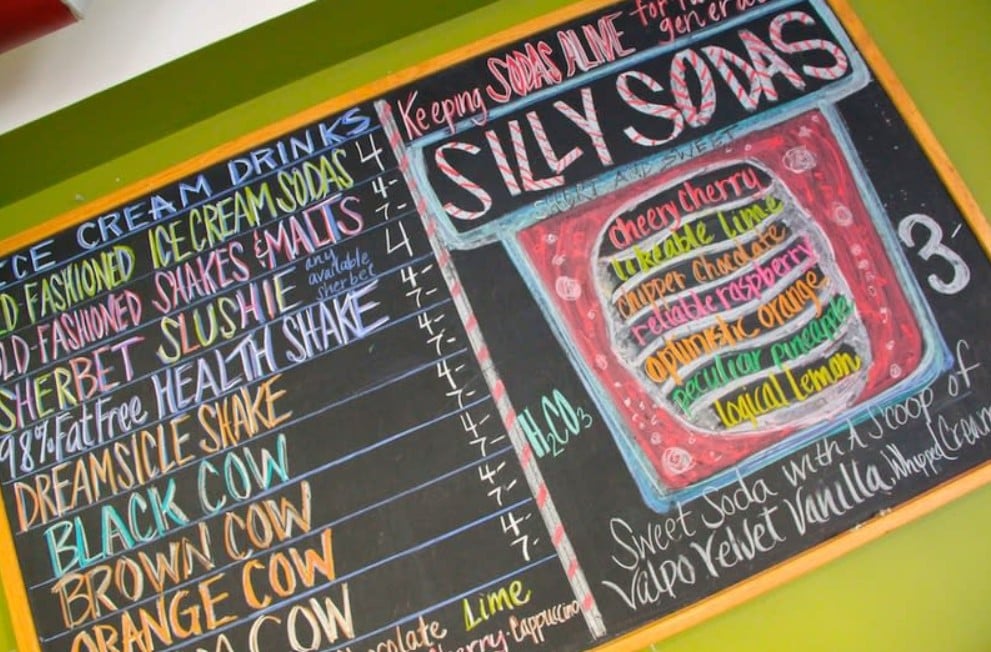 ICE CREAM DRINKS
OLD-FASHIONED ICE CREAM SODAS 4
OLD-FASHIONED SHAKES & MALTS 4-
7-
SHERBET SLUSHIE any available sherbet 4
98% Fat Free HEALTH SHAKE 4-
7-
DREAMSICLE SHAKE 4-
7-
BLACK COW 4-
7-
BROWN COW 4-
7-
ORANGE COW 4-
7-
COW 4-
7-
Lime
Cappuccino
Keeping SODAS ALIVE for
SILLY SODAS
SHORT AND SWEET
cheery cherry
likeable lime
chipper chocolate
reliable raspberry
optimistic orange
peculiar pineapple
logical lemon
3-
H2CO3
Sweet Soda with A Scoop of
Valpo Velvet Vanilla, Whipped Cream